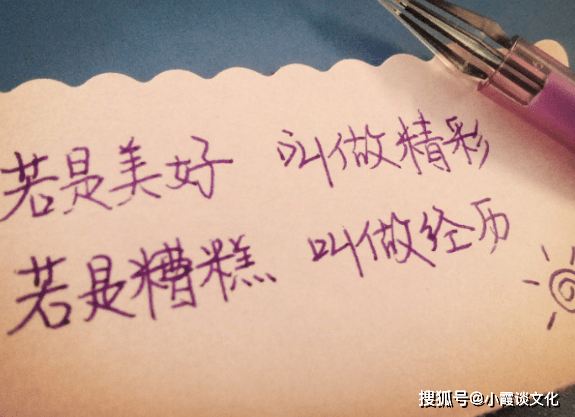 若是美好 叫做精彩
若是糟糕 叫做经历
搜狐号@小霞谈文化